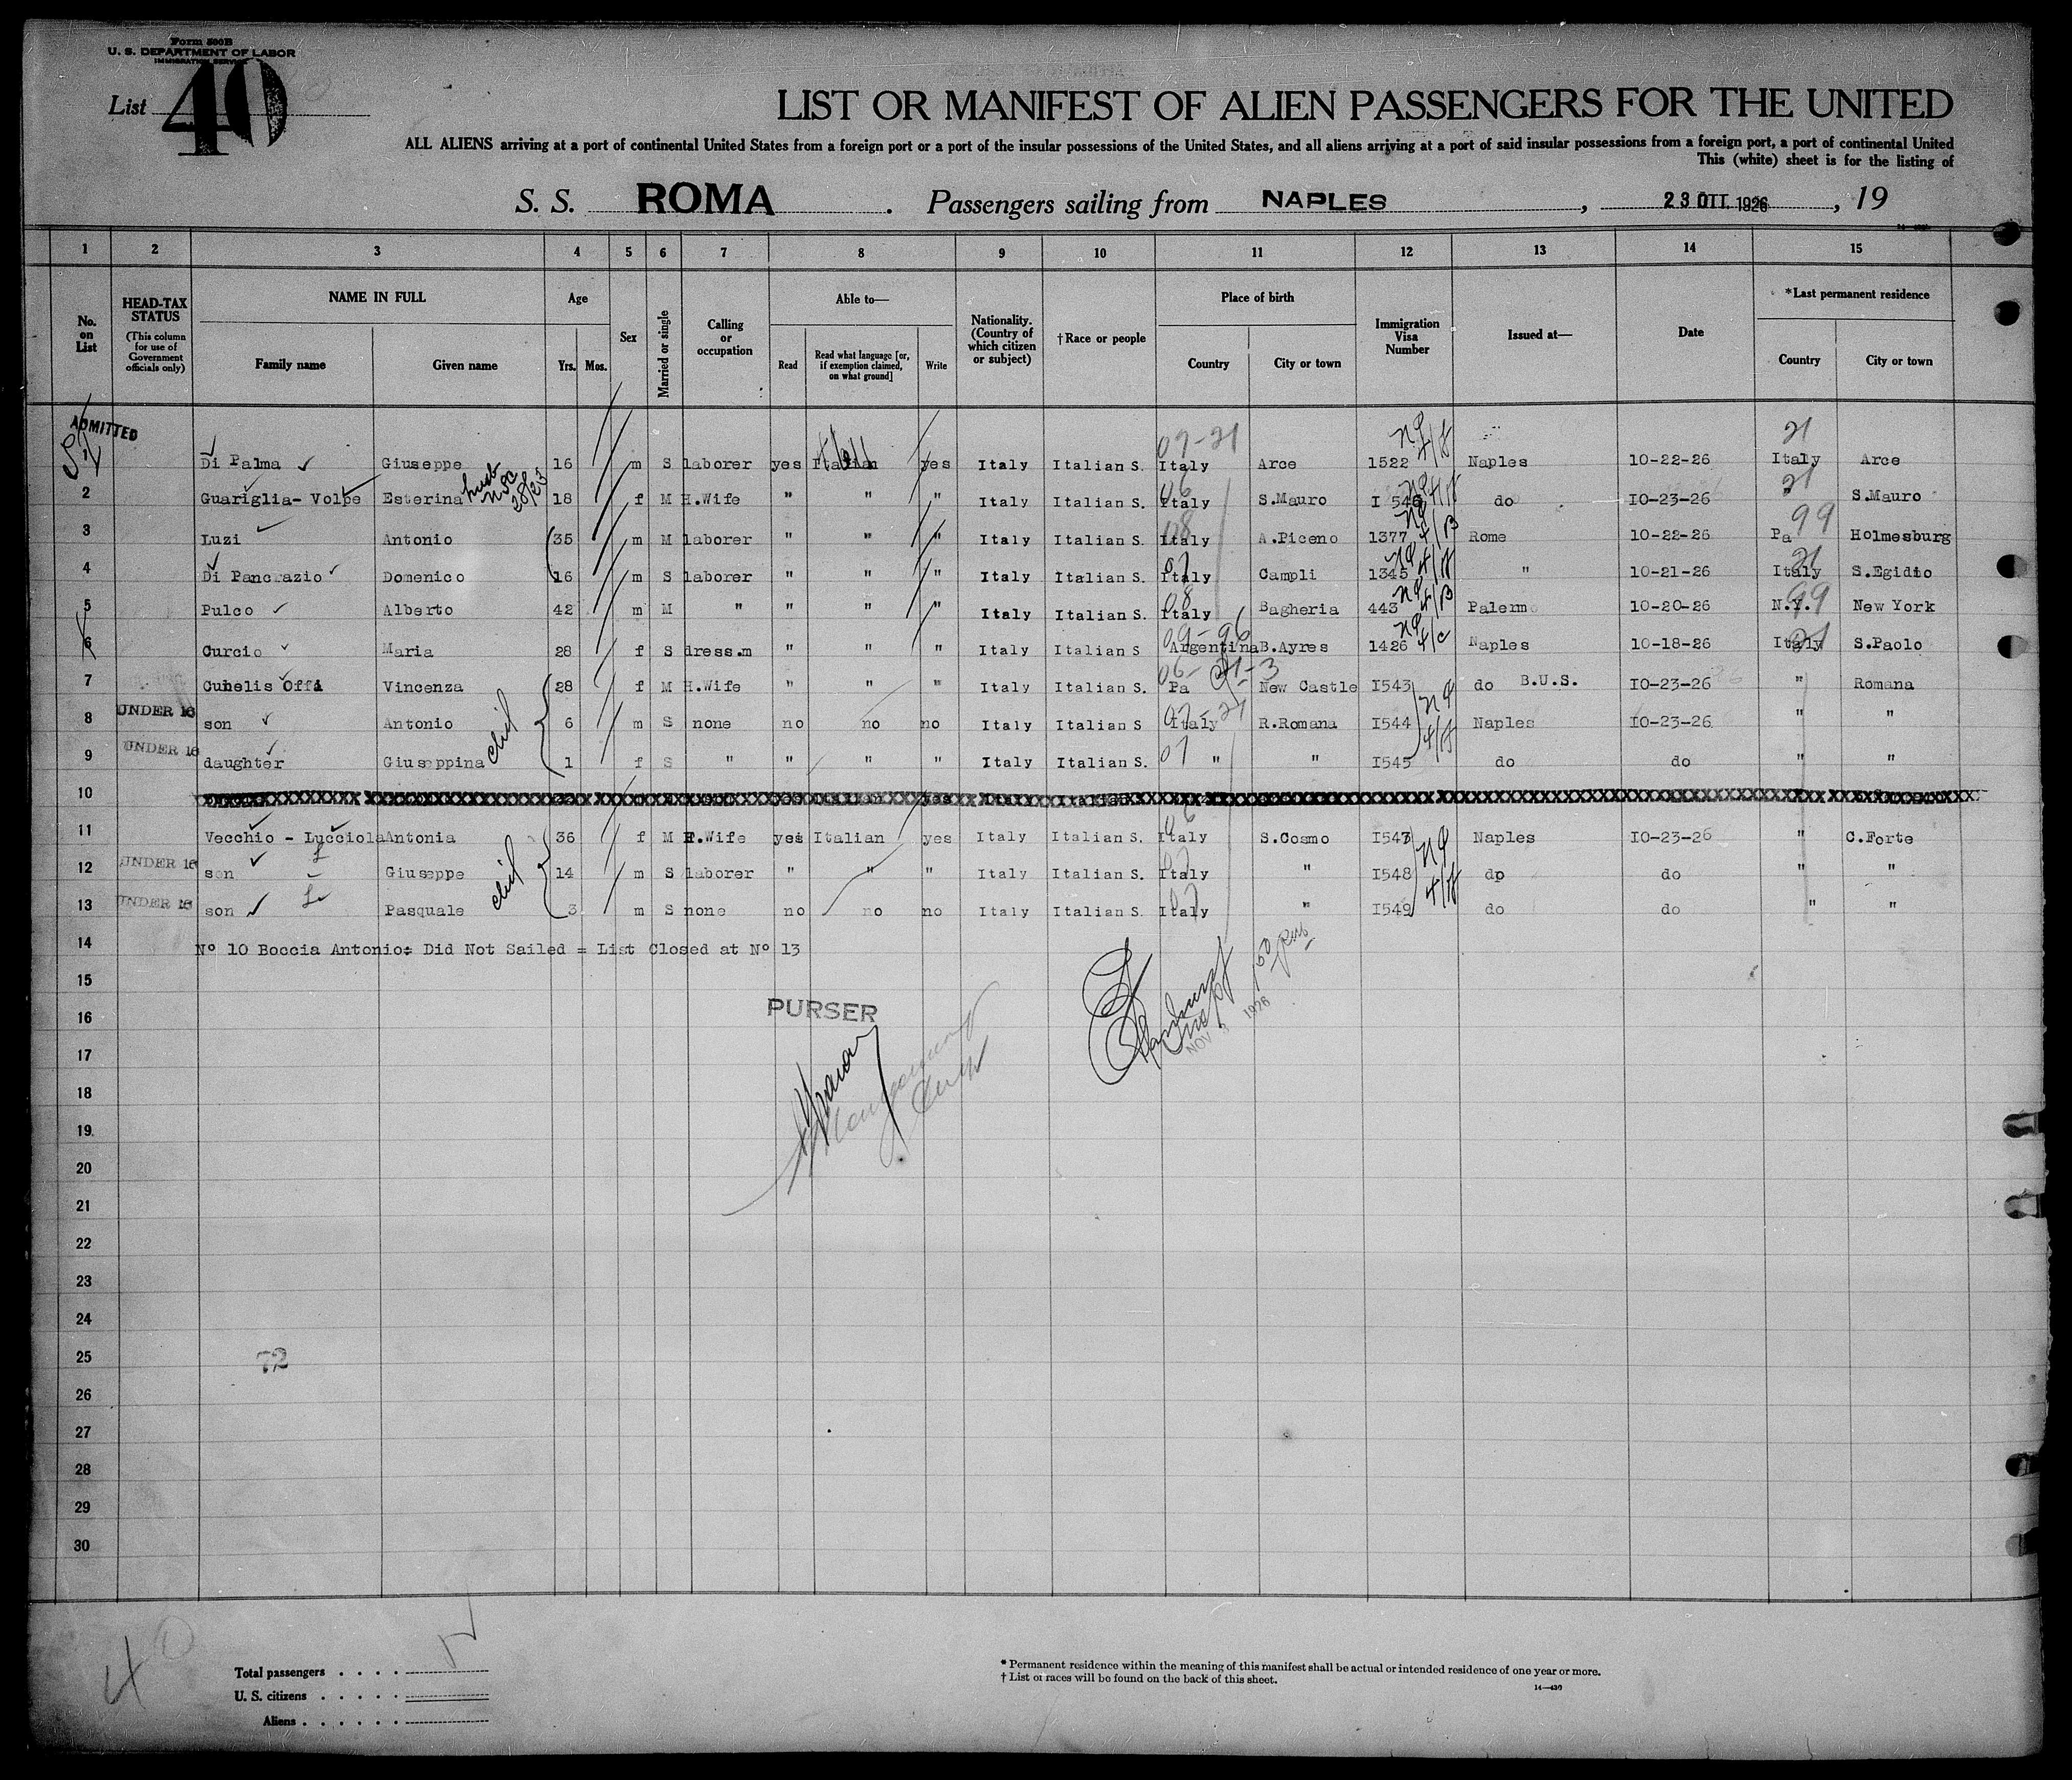 Form 500B
U. S. DEPARTMENT OF LABOR
IMMIGRATION SERVICE
List 40
LIST OR MANIFEST OF ALIEN PASSENGERS FOR THE UNITED
ALL ALIENS arriving at a port of continental United States from a foreign port or a port of the insular possessions of the United States, and all aliens arriving at a port of said insular possessions from a foreign port, a port of continental United
This (white) sheet is for the listing of
S. S. ROMA. Passengers sailing from NAPLES, 23 OTT. 1926, 19
1 2 3 4 5 6 7 8 9 10 11 12 13 14 15
No. on List
HEAD-TAX STATUS (This column for use of Government officials only)
NAME IN FULL Family name Given name
Age Yrs. Mos.
Sex
Married or single
Calling or occupation
Able to— Read Read what language [or, if exemption claimed, on what ground] Write
Nationality. (Country of which citizen or subject)
†Race or people
Place of birth Country City or town
Immigration Visa Number
Issued at—
Date
*Last permanent residence Country City or town
ADMITTED
Di Palma Giuseppe 16 m S laborer yes Italian yes Italy Italian S. Italy Arce 1522 Naples 10-22-26 Italy Arce
2 Guariglia- Volpe Esterina 18 f M H.Wife " " " Italy Italian S. Italy S.Mauro I 546 do I0-23-26 " S.Mauro
3 Luzi Antonio 35 m M laborer " " " Italy Italian S. Italy A.Piceno 1377 Rome 10-22-26 Pa Holmesburg
4 Di Pancrazio Domenico 16 m S laborer " " " Italy Italian S. Italy Campli 1345 " 10-21-26 Italy S.Egidio
5 Pulco Alberto 42 m M " " " " Italy Italian S. Italy Bagheria 443 Palermo 10-20-26 N.Y. New York
6 Curcio Maria 28 f S dress.m " " " Italy Italian S Argentina B.Ayres 1426 Naples 10-18-26 Italy S.Paolo
7 Cuhelis Offi Vincenza 28 f M H.Wife " " " Italy Italian S Pa New Castle I543 do B.U.S. I0-23-26 " Romana
8 UNDER 16 son Antonio 6 m S none no no no Italy Italian S Italy R.Romana I544 Naples I0-23-26 " "
9 UNDER 16 daughter Giuseppina 1 f S " " " " Italy Italian S. " " I545 do do " "
10
11 Vecchio - Lucciola Antonia 36 f M H.Wife yes Italian yes Italy Italian S. Italy S.Cosmo I547 Naples I0-23-26 " C.Forte
12 UNDER 16 son Giuseppe 14 m S laborer " " " Italy Italian S. Italy " I548 do do " "
13 UNDER 16 son Pasquale 3 m S none no no no Italy Italian S. Italy " I549 do do " "
14 Nº 10 Boccia Antonio: Did Not Sailed = List Closed at Nº 13
15
16 PURSER
NOV 1926
17
18
19
20
21
22
23
24
25 72
26
27
28
29
30
40
Total passengers . . . .
U. S. citizens . . . . .
Aliens . . . . . .
* Permanent residence within the meaning of this manifest shall be actual or intended residence of one year or more.
† List of races will be found on the back of this sheet.
14—430